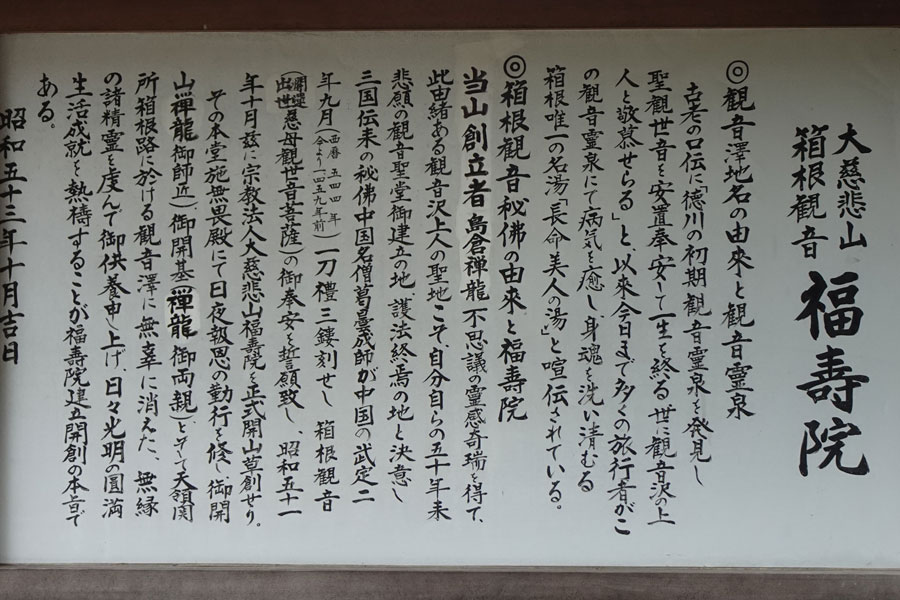 大慈悲山
箱根観音
福壽院
◎観音澤地名の由來と観音霊泉
古老の口伝に「徳川の初期観音霊泉を発見し
聖観世音を安置奉安して一生を終る 世に観音沢の上
人と敬慕せらる」と、以來今日まで多くの旅行者がこ
の観音霊泉にて病気を癒し身魂を洗い清むる
箱根唯一の名湯「長命美人の湯」と喧伝されている。
◎箱根観音秘佛の由來と福壽院
当山創立者 島倉禅龍 不思議の霊感奇瑞を得て、
此由緒ある観音沢上人の聖地こそ、自分自らの五十年来
悲願の観音聖堂御建立の地 護法終焉の地と決意し
三国伝来の秘佛中国名僧葛曼成師が中国の武定二
年九月(西暦五四四年 今より一四五九年前)一刀禮三鏤刻せし 箱根観音
(開運出世)慈母観世音菩薩の御奉安を誓願致し、昭和五十一
年十月茲に宗教法人大慈悲山福壽院を正式開山草創せり。
その本堂施無畏殿にて日夜報恩の勤行を修し、御開
山(禅龍御師近)、御開基(禅龍御両親)として天領関
所箱根路に於ける観音澤に無辜に消えた、無縁
の諸精霊を虔んで御供養申し上げ、日々光明の圓満
生活成就を熱禱することが福壽院建立開創の本旨で
ある。
昭和五十三年十月吉日